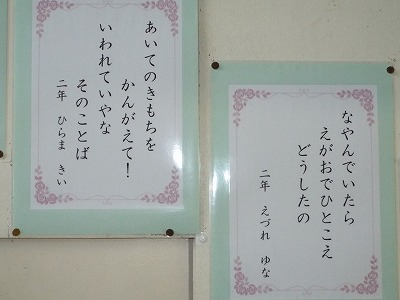 あいてのきもちを
かんがえて！
いわれていやな
そのことば
二年　ひらま　きい
なやんでいたら
えがおでひとこえ
どうしたの
二年　えづれ　ゆな